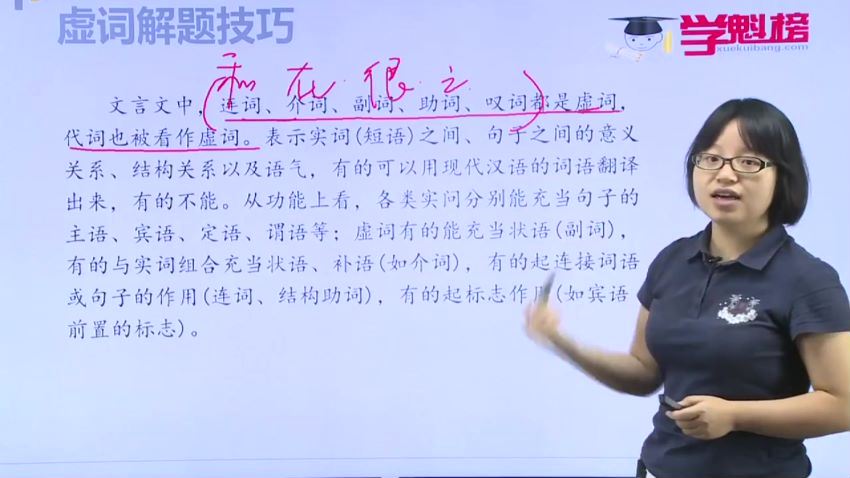 虚词解题技巧
学魁榜
xuekuibang.com
和 在 很 之
文言文中，连词、介词、副词、助词、叹词都是虚词，
代词也被看作虚词。表示实词(短语)之间、句子之间的意义
关系、结构关系以及语气，有的可以用现代汉语的词语翻译
出来，有的不能。从功能上看，各类实问分别能充当句子的
主语、宾语、定语、谓语等；虚词有的能充当状语(副词)，
有的与实词组合充当状语、补语(如介词)，有的起连接词语
或句子的作用(连词、结构助词)，有的起标志作用(如宾语
前置的标志)。